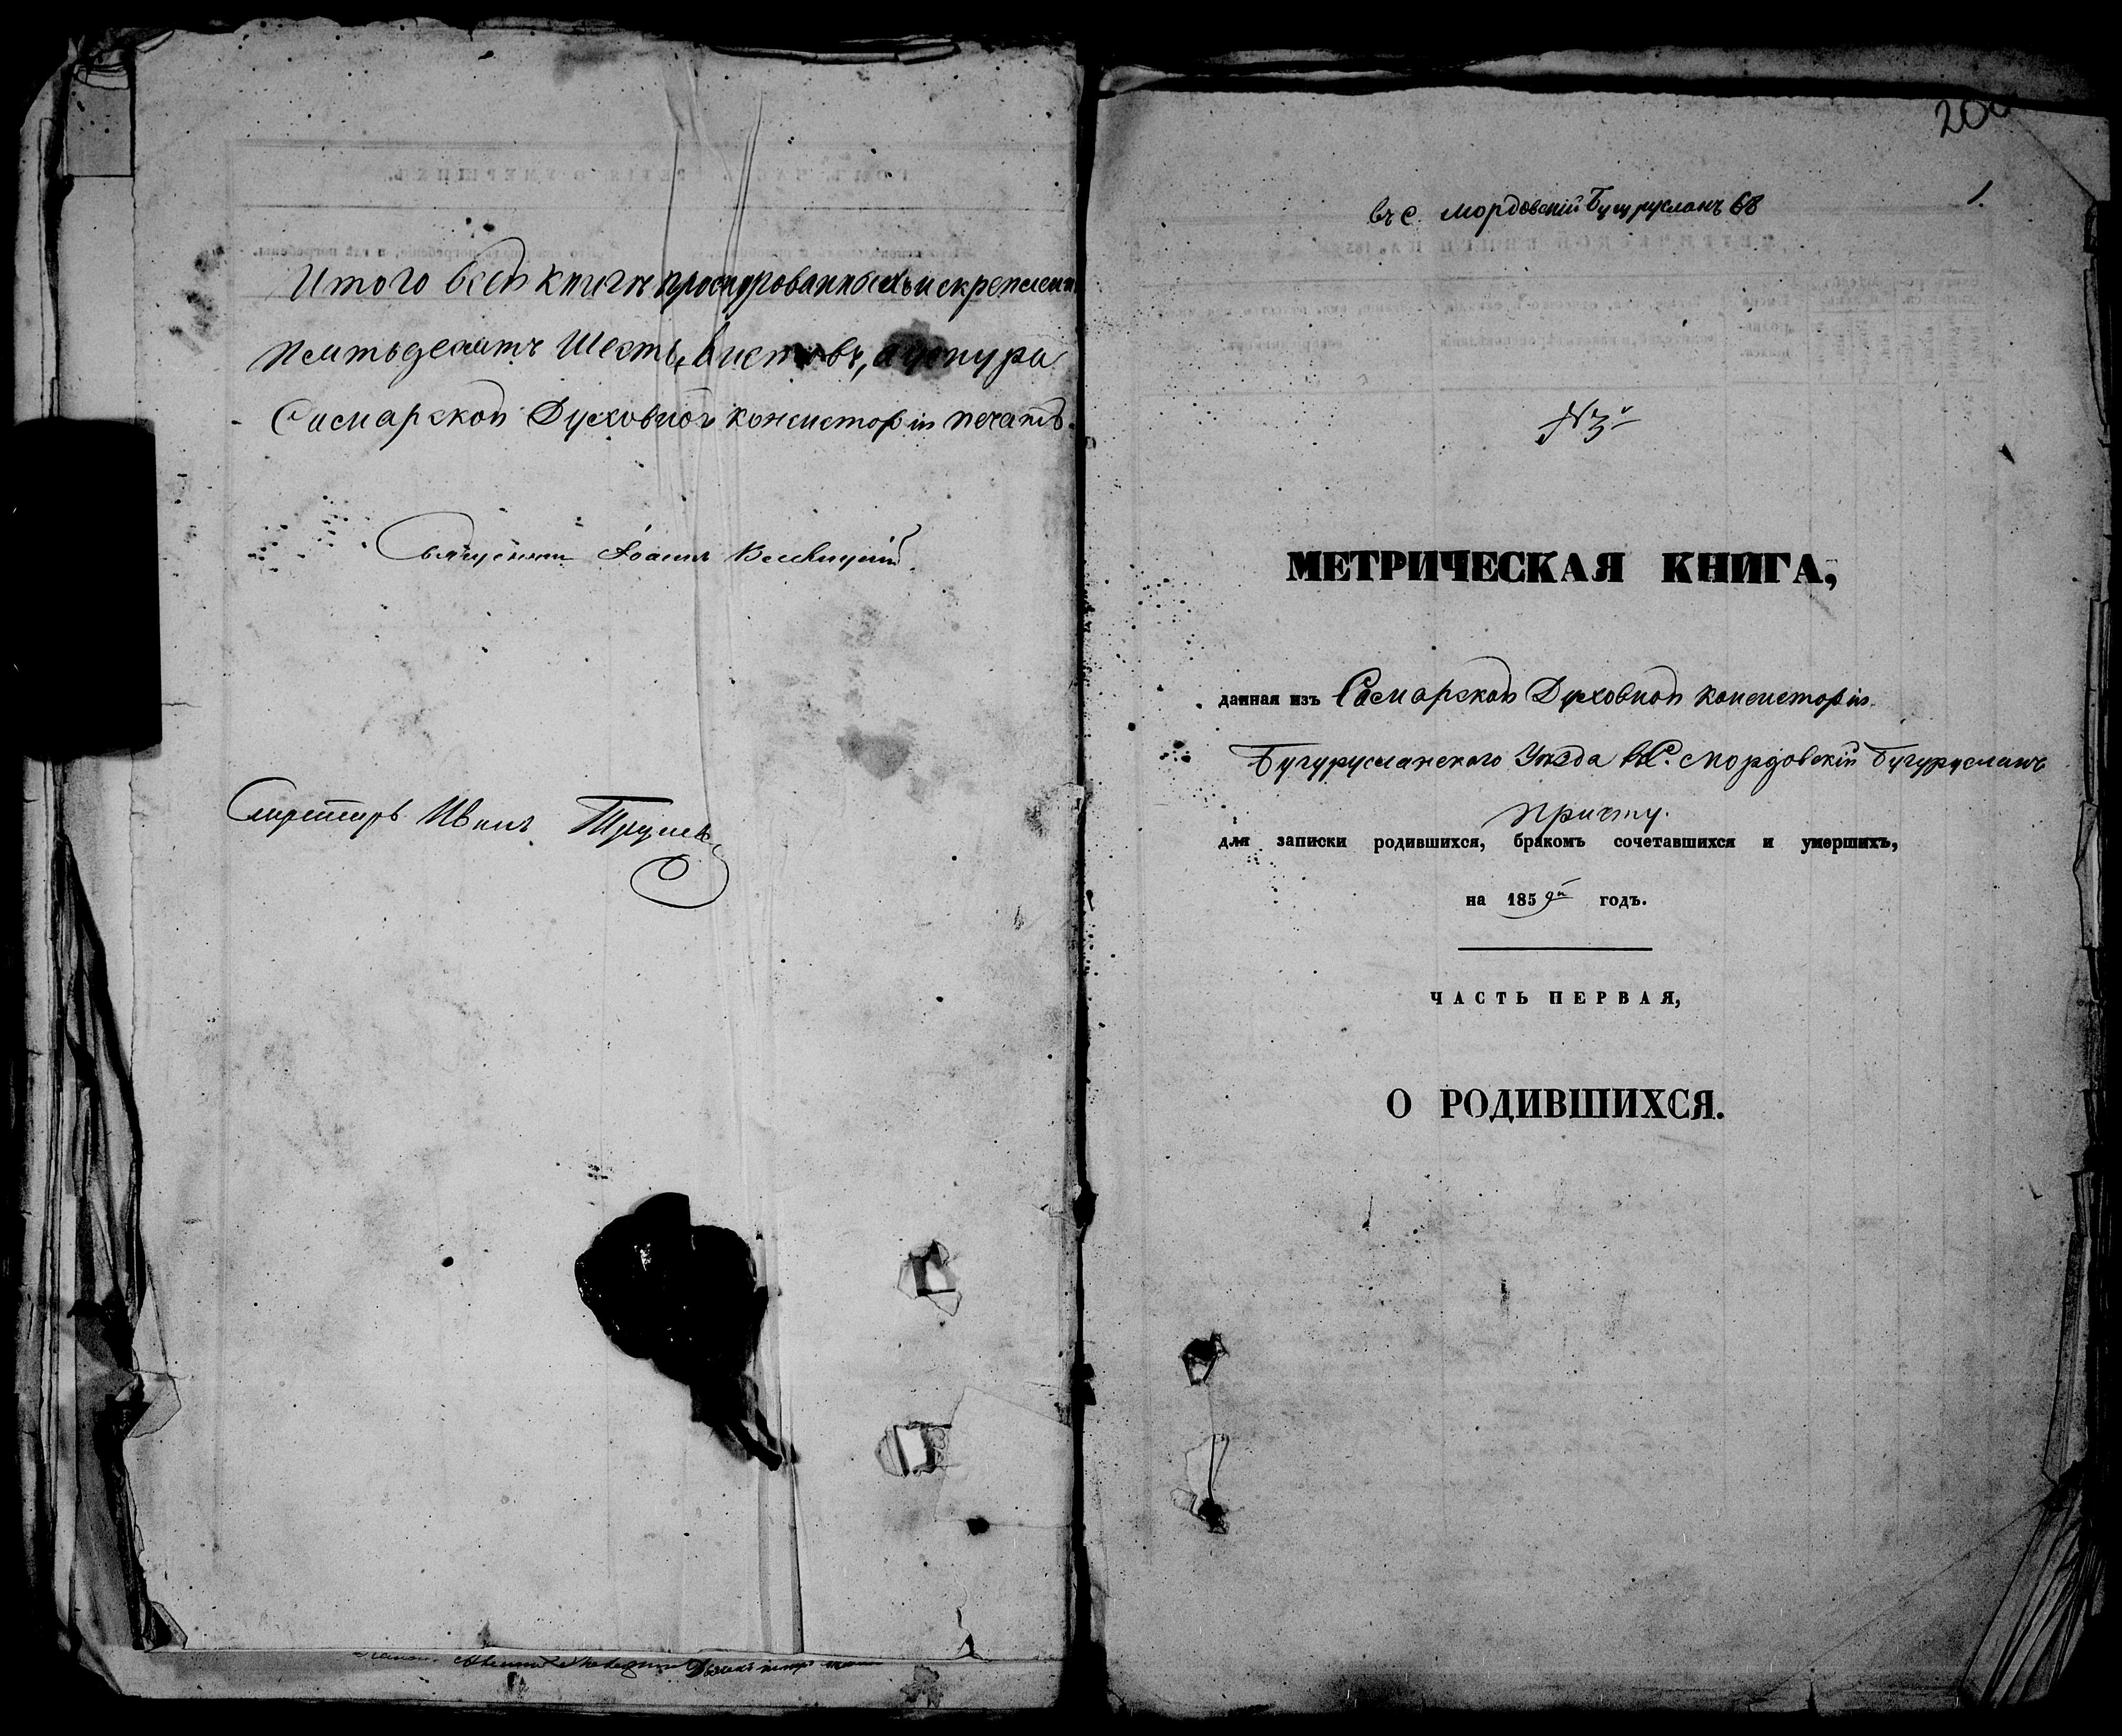 Итого всей книги прошнурованныхъ и скрепленн
Пятьдесятъ Шесть листовъ, а у шнура
Самарской Духовной консисторіи печать.
Священникъ Іоаннъ
Секретарь Иванъ
200
1.
въ с. Мордовскій Бугурусланъ 68
№3й
МЕТРИЧЕСКАЯ КНИГА,
данная изъ Самарской Духовной консисторіи
Бугурусланского Уезда въ С. Мордовскій Бугурусланъ
причту.
для записки родившихся, бракомъ сочетавшихся и умершихъ,
на 1859й годъ.
ЧАСТЬ ПЕРВАЯ,
О РОДИВШИХСЯ.